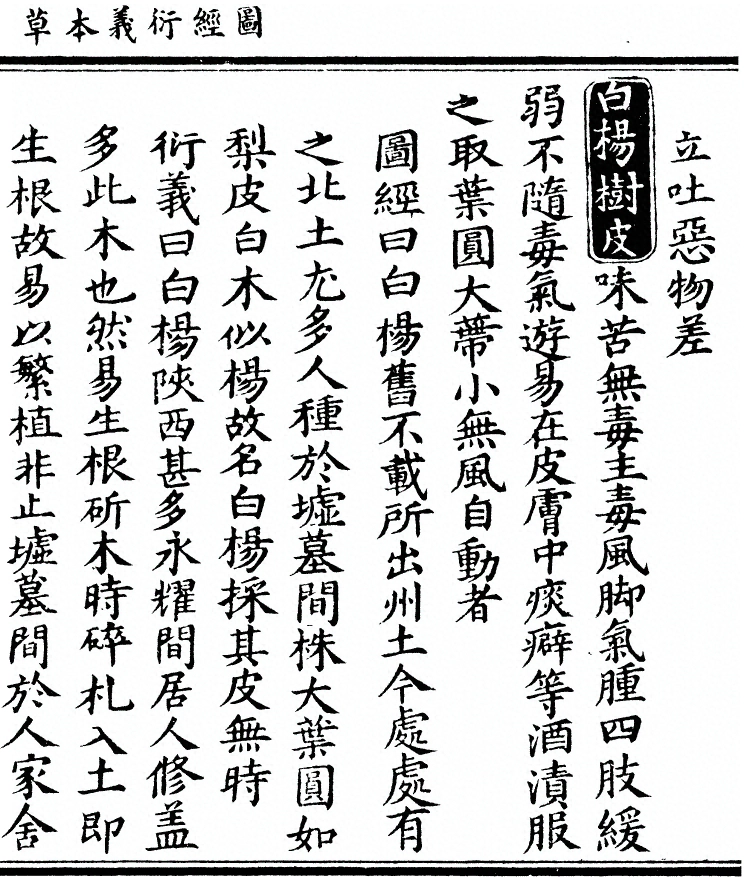 圖經衍義本草
立吐惡物差
白楊樹皮味苦無毒主毒風脚氣腫四肢緩
弱不隨毒氣遊易在皮膚中痰癖等酒漬服
之取葉圓大蔕小無風自動者
圖經曰白楊舊不載所出州土今處處有
之北土尤多人種於墟墓間株大葉圓如
梨皮白木似楊故名白楊採其皮無時
衍義曰白楊陝西甚多永耀間居人修盖
多此木也然易生根斫木時碎札入土即
生根故易以繁植非止墟墓間於人家舍